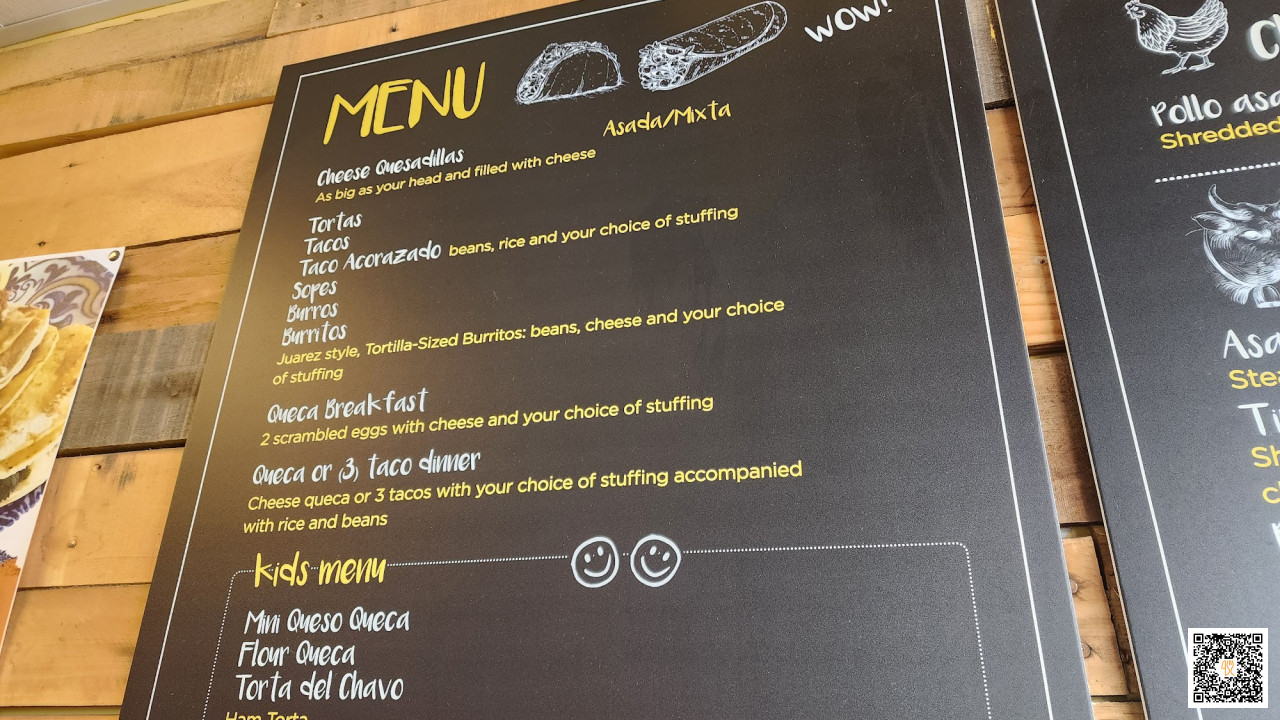 MENU
wow!
Asada/Mixta
Cheese Quesadillas
As big as your head and filled with cheese
Tortas
Tacos
Taco Acorazado beans, rice and your choice of stuffing
Sopes
Burros
Burritos
Juarez style, Tortilla-Sized Burritos: beans, cheese and your choice
of stuffing
Queca Breakfast
2 scrambled eggs with cheese and your choice of stuffing
Queca or (3) taco dinner
Cheese queca or 3 tacos with your choice of stuffing accompanied
with rice and beans
kids menu
Mini Queso Queca
Flour Queca
Torta del Chavo
Ham Torta
Pollo
Shredded